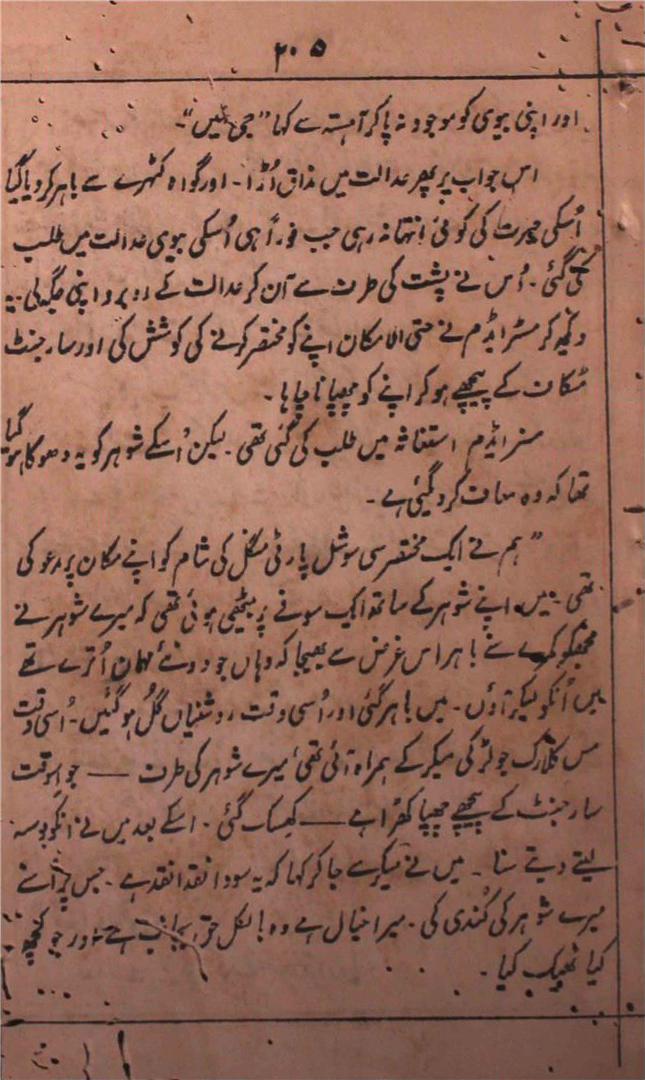 ۲۰۵
اور اپنی بیوی کو موجود نہ پا کر آہستہ سے کہا "جی نہیں"۔
اس جواب پر پھر عدالت میں مذاق اُڑا۔ اور گواہ کٹہرے سے باہر کر دیا گیا
اُسکی حیرت کی کوئی انتہا نہ رہی جب فوراً ہی اُسکی بیوی عدالت میں طلب
کی گئی۔ اُس نے پشت کی طرف سے آن کر عدالت کے روبرو اپنی جگہ لی۔ یہ
دیکھ کر مسٹر ایڈم نے حتی الامکان اپنے کو مختصر کرنے کی کوشش کی اور سارجنٹ
مسکان کے پیچھے ہو کر اپنے کو چھپانا چاہا۔
مسز ایڈم استغاثہ میں طلب کی گئی تھی۔ لیکن اُسکے شوہر کو یہ دھوکا ہو گیا
تھا کہ وہ معاف کر دی گئی ہے۔
"ہم نے ایک مختصر سی سوشل پارٹی منگل کی شام کو اپنے مکان پر مدعو کی
تھی۔ میں اپنے شوہر کے ساتھ ایک سوفے پر بیٹھی ہوئی تھی کہ میرے شوہر نے
مجھکو کمرے سے باہر اس غرض سے بھیجا کہ وہاں جو دو نئے مہمان اُترے تھے
میں اُنکو لیکر آؤں۔ میں باہر گئی اور اُسی وقت روشنیاں گُل ہو گئیں۔ اُسی وقت
مس کلارک جولڑکی میکر کے ہمراہ آئی تھی میرے شوہر کی طرف — جو اسوقت
سارجنٹ کے پیچھے چھپا کھڑا ہے — کھسک گئی۔ اسکے بعد میں نے انکو بوسہ
لیتے دیتے سنا۔ میں نے میکر سے جا کر کہا کہ یہ سودا نقدا نقد ہے۔ جس پر اُسنے
میرے شوہر کی کُندی کی۔ میرا خیال ہے وہ بالکل حق بجانب ہے اور جو کچھ
کیا ٹھیک کیا۔